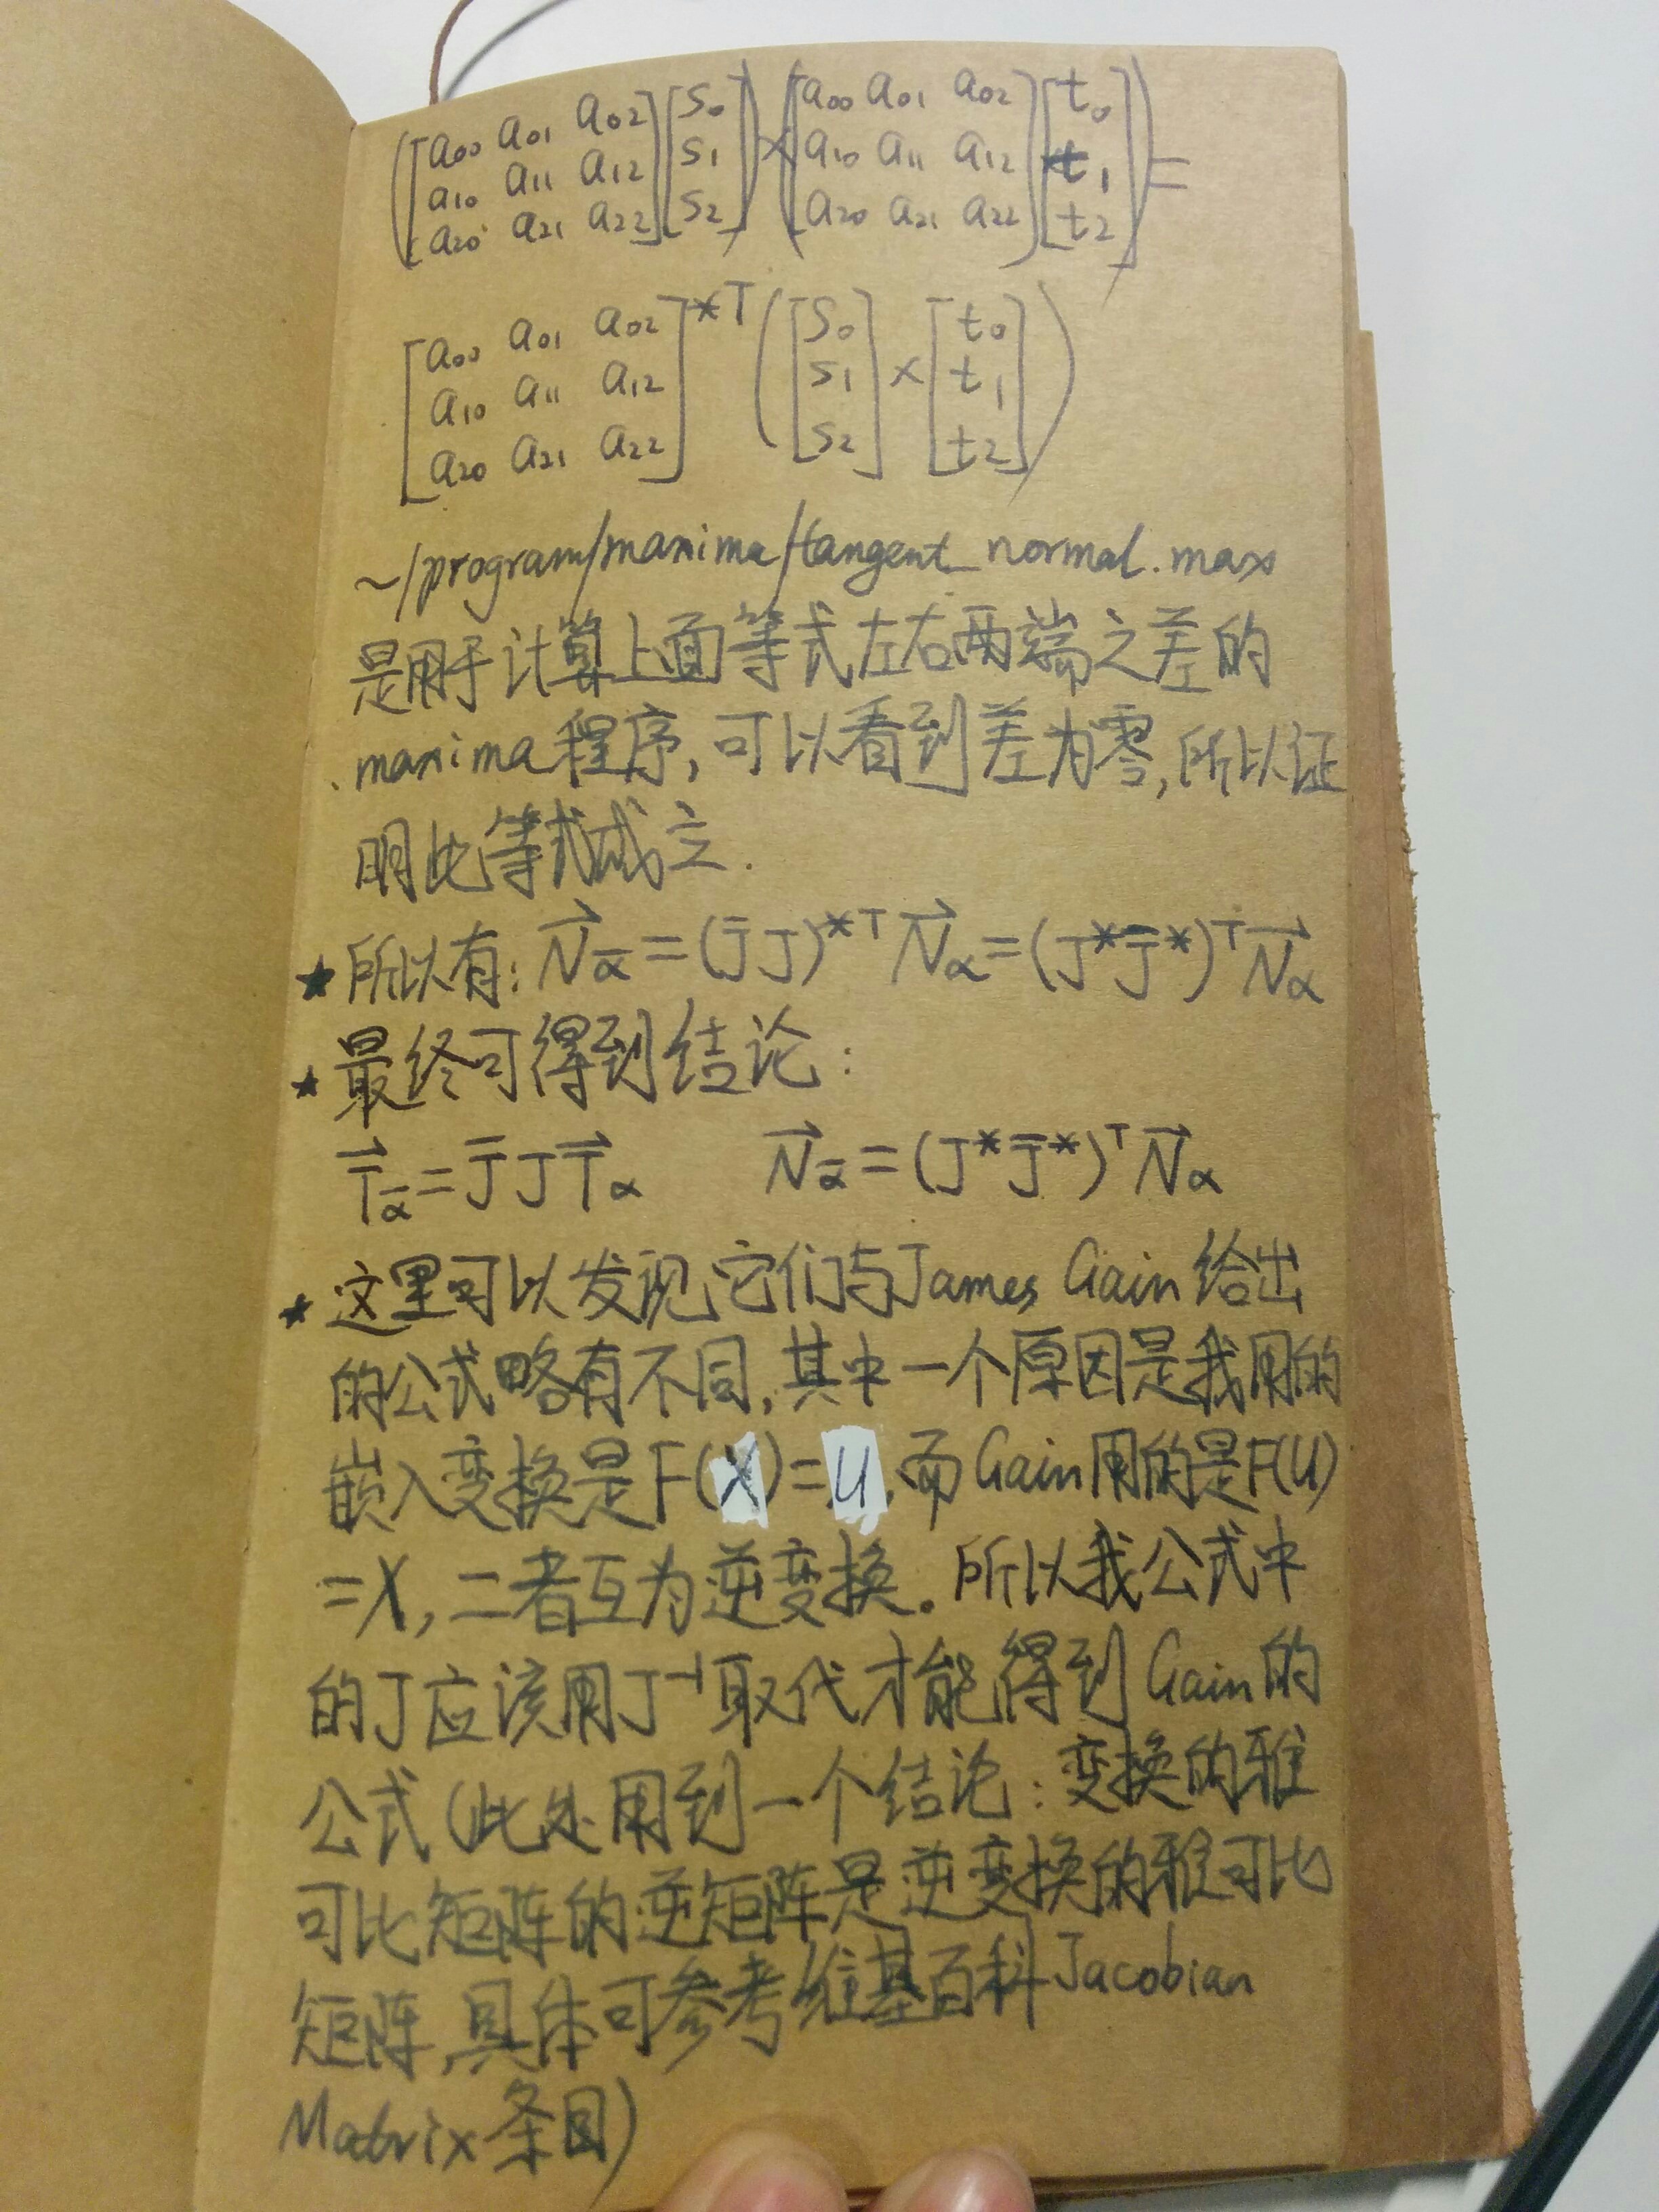 ([a₀₀ a₀₁ a₀₂ [s₀ ([a₀₀ a₀₁ a₀₂ [t₀
a₁₀ a₁₁ a₁₂ s₁ × a₁₀ a₁₁ a₁₂ t₁ =
a₂₀ a₂₁ a₂₂] s₂]) a₂₀ a₂₁ a₂₂] t₂])
[a₀₀ a₀₁ a₀₂ *T ([s₀ [t₀
a₁₀ a₁₁ a₁₂ s₁ × t₁
a₂₀ a₂₁ a₂₂] s₂] t₂])
~/program/maxima/tangent_normal.max
是用于计算上面等式左右两端之差的
maxima程序,可以看到差为零,所以证
明此等式成立.
★所以有: N⃗_ᾱ = (J̄J)*ᵀ N⃗_α = (J*J̄*)ᵀ N⃗_α
★最终可得到结论:
T⃗_ᾱ = J̄JT⃗_α N⃗_ᾱ = (J*J̄*)ᵀ N⃗_α
★这里可以发现它们与James Gain给出
的公式略有不同,其中一个原因是我用的
嵌入变换是F(X)=U,而Gain用的是F(U)
=X,二者互为逆变换。所以我公式中
的J应该用J⁻¹取代才能得到Gain的
公式(此处用到一个结论:变换的雅
可比矩阵的逆矩阵是逆变换的雅可比
矩阵,具体可参考维基百科Jacobian
Matrix条目)